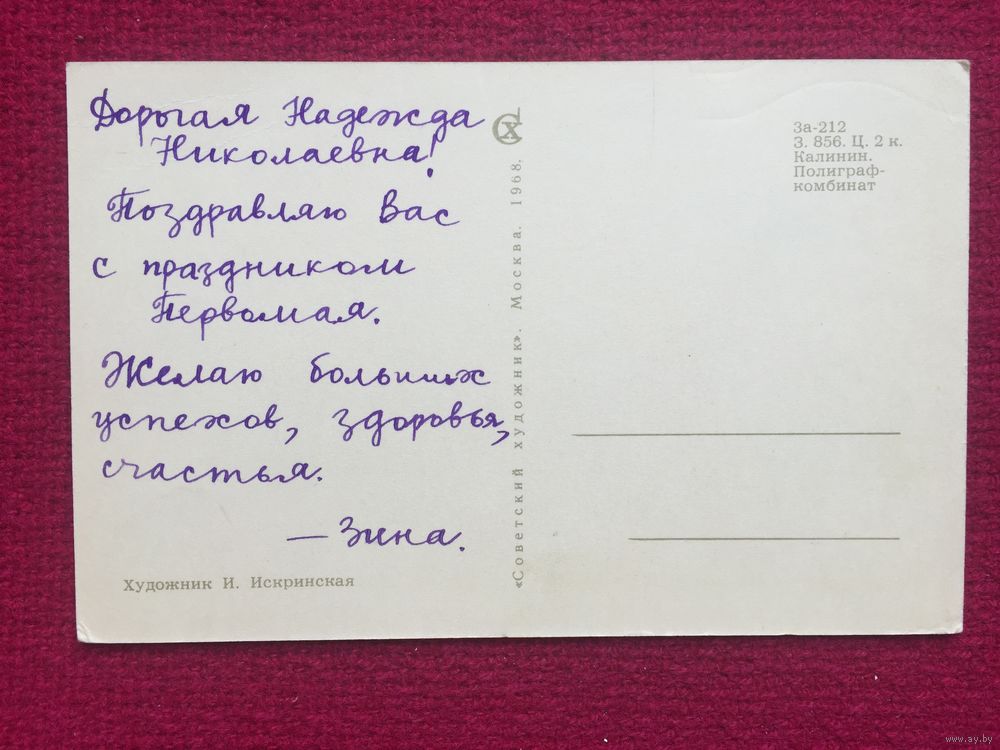 Дорогая Надежда
Николаевна!
Поздравляю Вас
с праздником
Первомая.
Желаю больших
успехов, здоровья,
счастья.
— Зина.
Художник И. Искринская
«Советский художник». Москва. 1968.
СХ
За-212
З. 856. Ц. 2 к.
Калинин.
Полиграф-
комбинат
www.ay.by